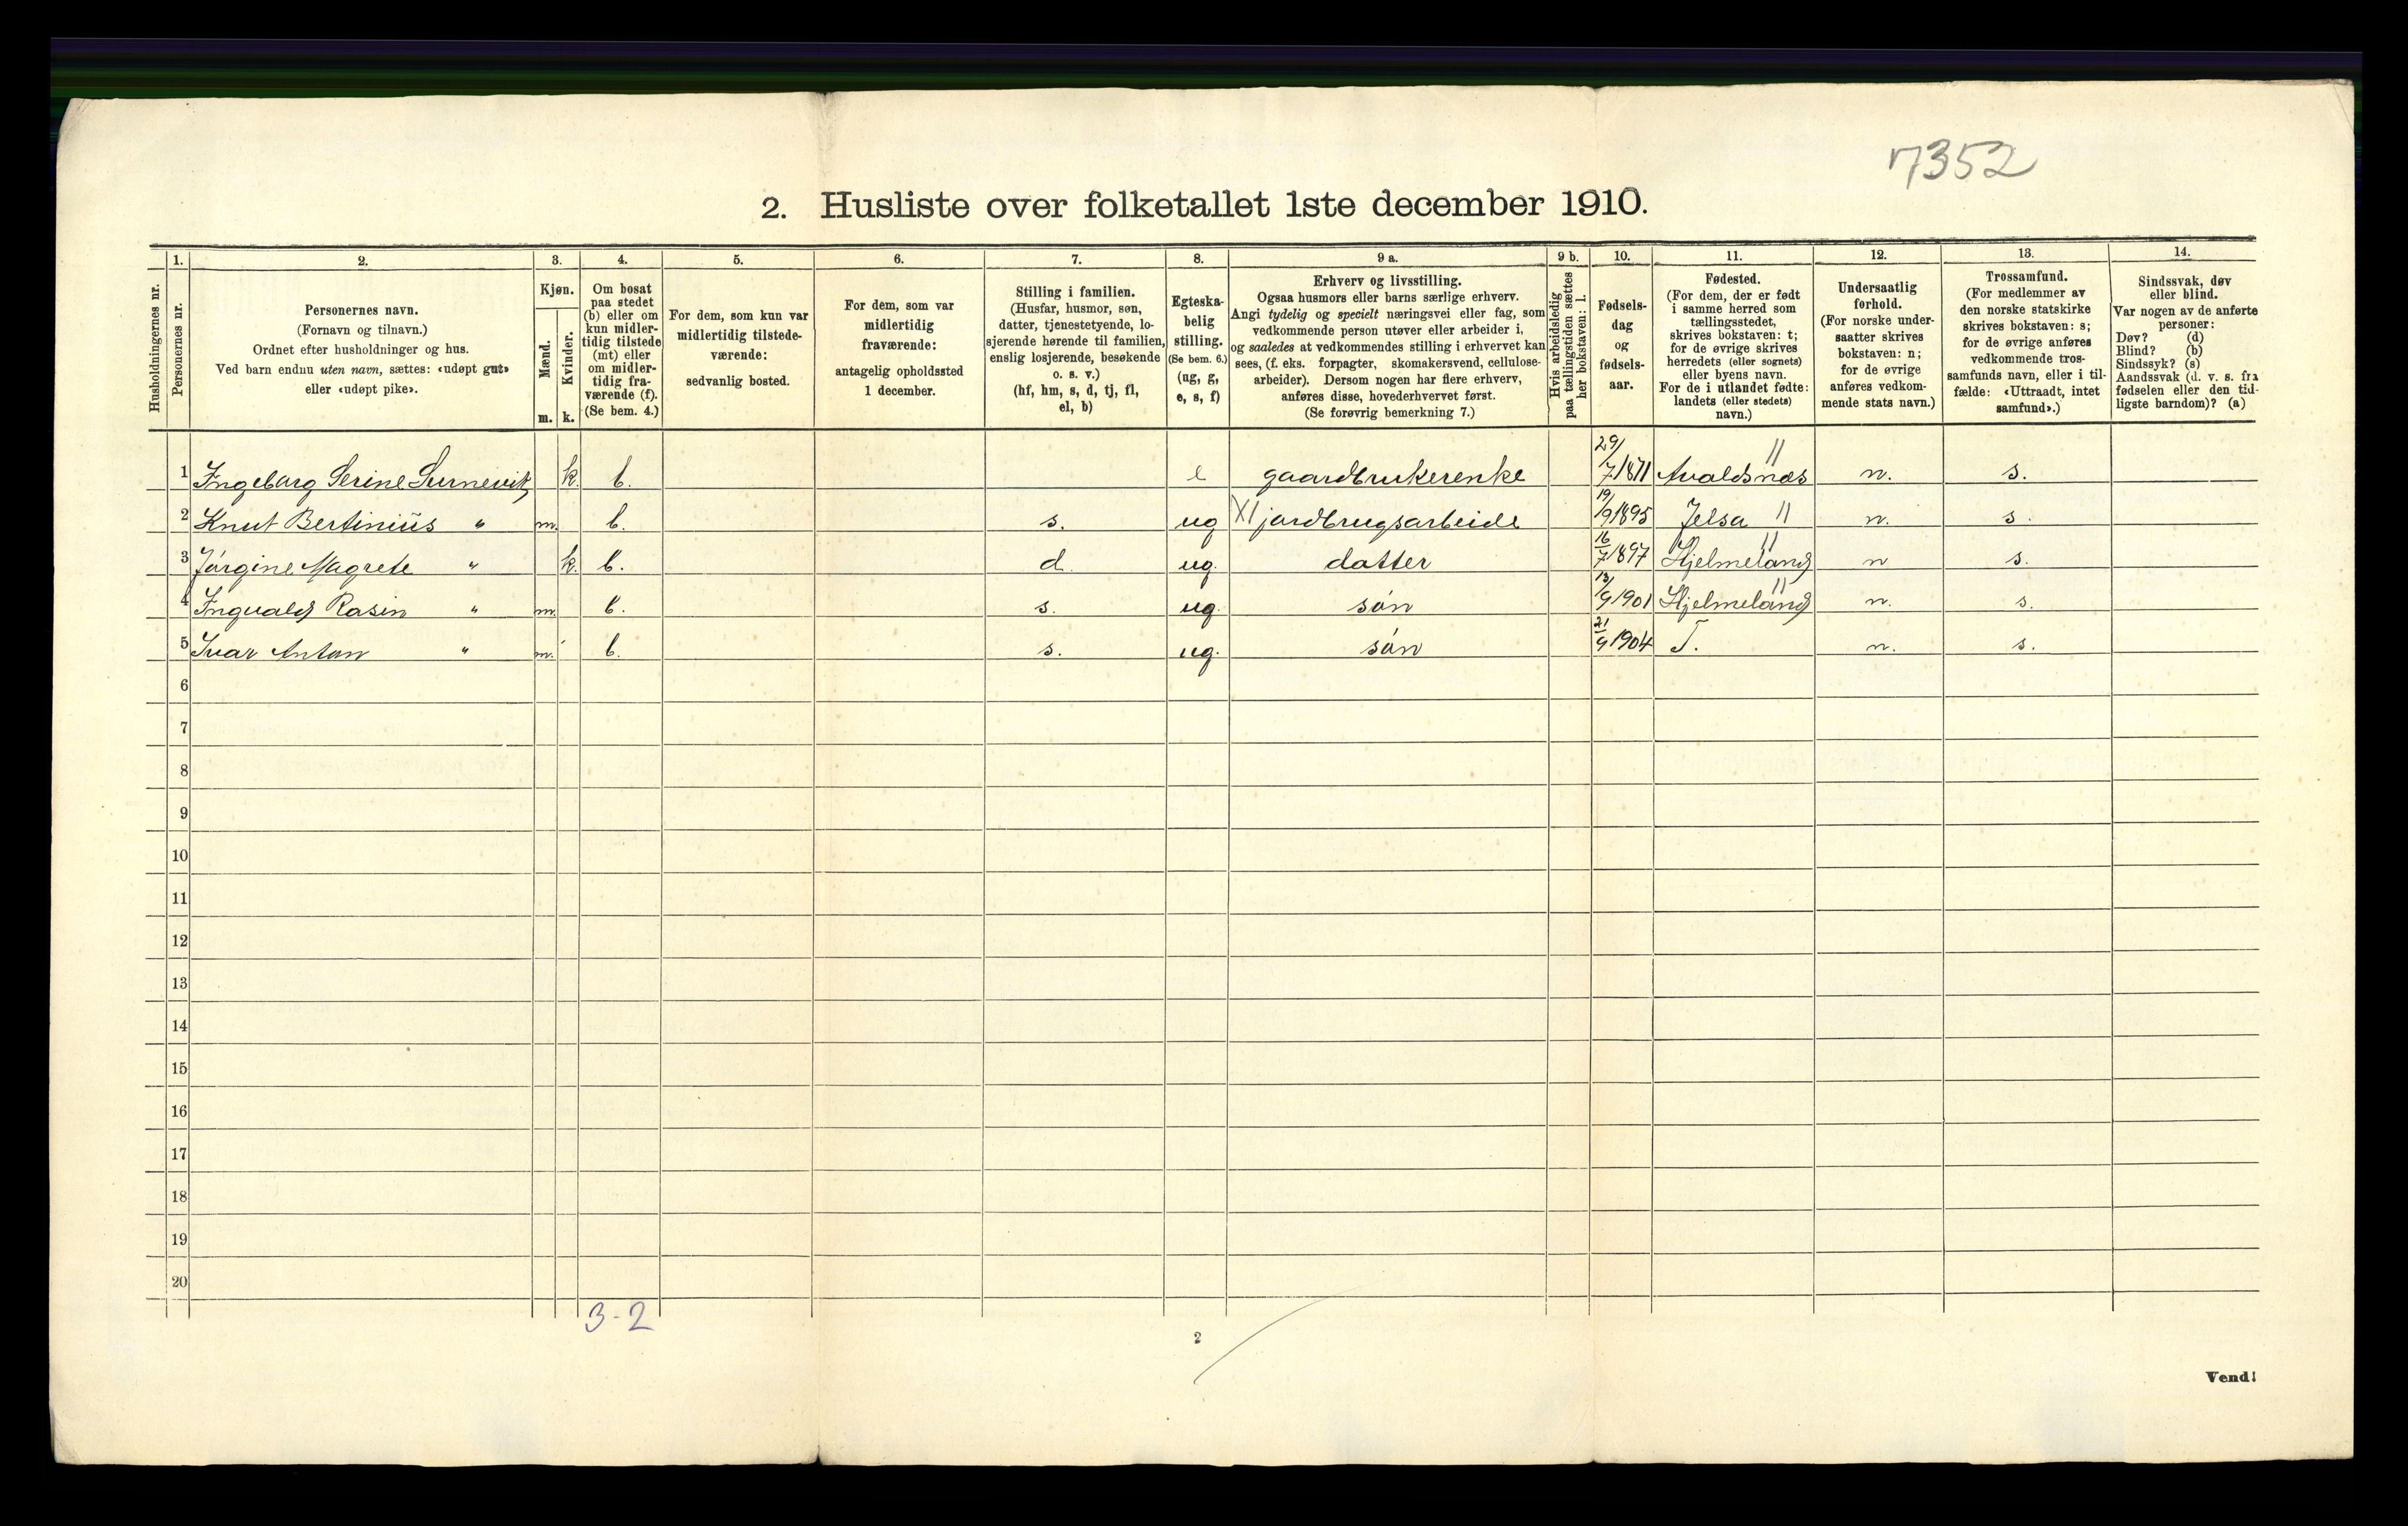 7352
2. Husliste over folketallet 1ste december 1910.
Husholdningernes nr.
1.
Personernes nr.
2.
Personernes navn.
(Fornavn og tilnavn.)
Ordnet efter husholdninger og hus.
Ved barn endnu uten navn, sættes: «udøpt gut»
eller «udøpt pike».
3.
Kjøn.
Mænd.
Kvinder.
m. k.
4.
Om bosat
paa stedet
(b) eller om
kun midler-
tidig tilstede
(mt) eller
om midler-
tidig fra-
værende (f).
(Se bem. 4.)
5.
For dem, som kun var
midlertidig tilstede-
værende:
sedvanlig bosted.
6.
For dem, som var
midlertidig
fraværende:
antagelig opholdssted
1 december.
7.
Stilling i familien.
(Husfar, husmor, søn,
datter, tjenestetyende, lo-
sjerende hørende til familien,
enslig losjerende, besøkende
o. s. v.)
(hf, hm, s, d, tj, fl,
el, b)
8.
Egteska-
belig
stilling.
(Se bem. 6.)
(ug, g,
e, s, f)
9 a.
Erhverv og livsstilling.
Ogsaa husmors eller barns særlige erhverv.
Angi tydelig og specielt næringsvei eller fag, som
vedkommende person utøver eller arbeider i,
og saaledes at vedkommendes stilling i erhvervet kan
sees, (f. eks. forpagter, skomakersvend, cellulose-
arbeider). Dersom nogen har flere erhverv,
anføres disse, hovederhvervet først.
(Se forøvrig bemerkning 7.)
9 b.
Hvis arbeidsledig
paa tællingstiden sættes
her bokstaven: l.
10.
Fødsels-
dag
og
fødsels-
aar.
11.
Fødested.
(For dem, der er født
i samme herred som
tællingsstedet,
skrives bokstaven: t;
for de øvrige skrives
herredets (eller sognets)
eller byens navn.
For de i utlandet fødte:
landets (eller stedets)
navn.)
12.
Undersaatlig
forhold.
(For norske under-
saatter skrives
bokstaven: n;
for de øvrige
anføres vedkom-
mende stats navn.)
13.
Trossamfund.
(For medlemmer av
den norske statskirke
skrives bokstaven: s;
for de øvrige anføres
vedkommende tros-
samfunds navn, eller i til-
fælde: «Uttraadt, intet
samfund».)
14.
Sindssvak, døv
eller blind.
Var nogen av de anførte
personer:
Døv? (d)
Blind? (b)
Sindssyk? (s)
Aandssvak (d. v. s. fra
fødselen eller den tid-
ligste barndom)? (a)
1 Ingeborg Serine k. b. e gaardbrukerenke 29/7 1871 Avaldsnæs " n. s.
2 Knut Bertinius " m. b. s. ug XI jordbrugsarbeide 19/9 1895 Jelsa " n. s.
3 Jórgine Magrete " k. b. d. ug. datter 16/7 1897 Hjelmeland " n s.
4 Ingvald Rasin " m. b. s. ug. són 13/9 1901 Hjelmeland " n. s.
5 Ivar Anton " m. b. s. ug. són 21/9 1904 T. n. s.
6
7
8
9
10
11
12
13
14
15
16
17
18
19
20
3-2
2
Vend!